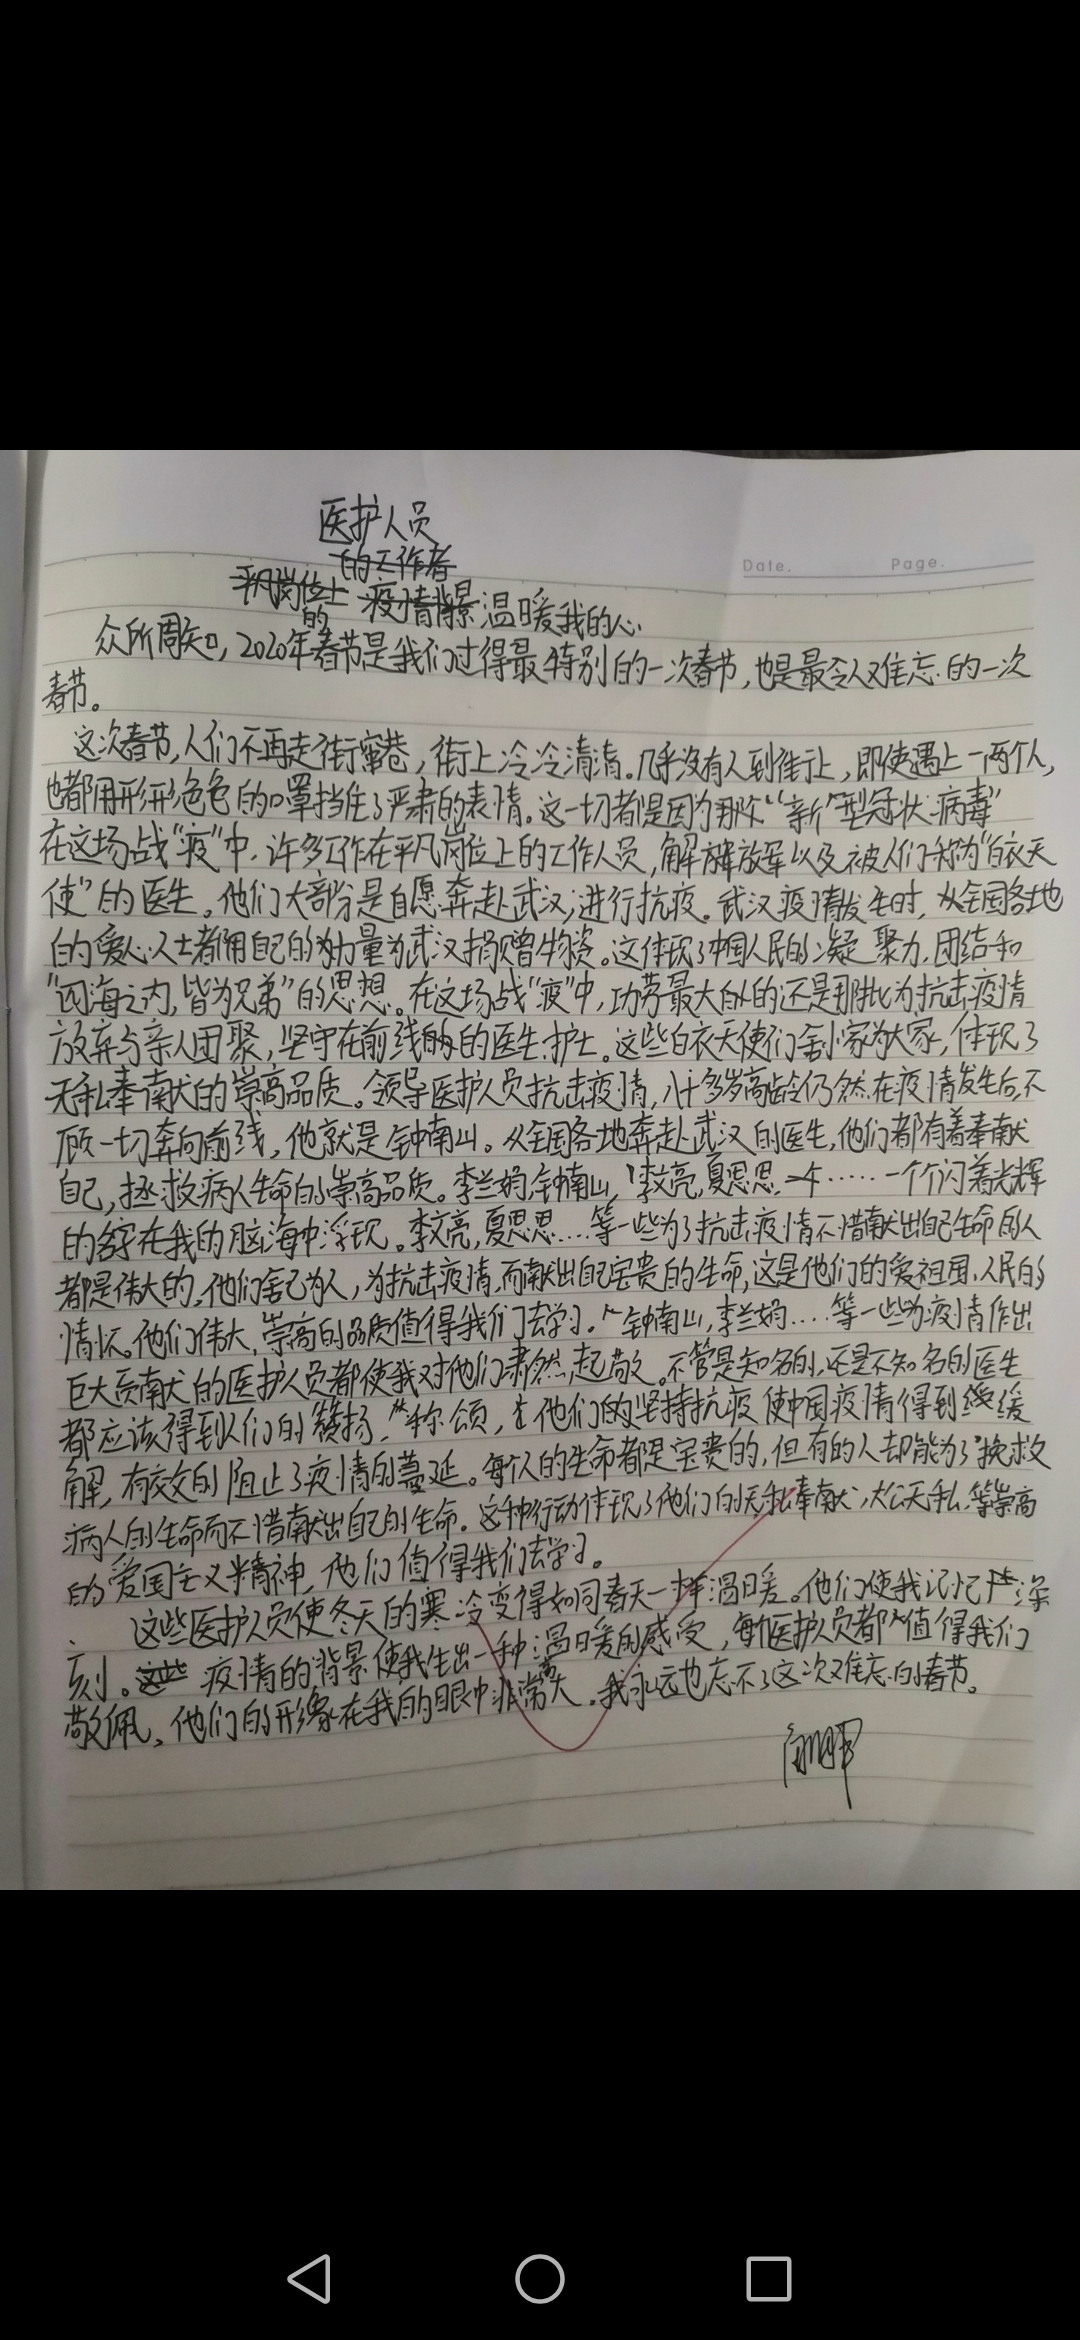 医护人员
的工作者
平凡岗位上 疫情背景温暖我的心
的
Date. Page.
众所周知,2020年春节是我们过得最特别的一次春节,也是最令人难忘的一次
春节。
这次春节,人们不再走街窜巷,街上冷冷清清。几乎没有人到街上,即使遇上一两个人,
也都用形形色色的口罩挡住了严肃的表情。这一切都是因为那个“新”型冠状病毒”
在这场战“疫”中,许多工作在平凡岗位上的工作人员,解放军以及被人们称为“白衣天
使”的医生。他们大部分是自愿奔赴武汉,进行抗疫。武汉疫情发生时,从全国各地
的爱心人士都用自己的力量为武汉捐赠物资。这体现了中国人民的凝聚力,团结和
“四海之内,皆为兄弟”的思想。在这场战“疫”中,功劳最大的还是那批为抗击疫情
放弃与亲人团聚,坚守在前线的医生护士。这些白衣天使们舍小家为大家,体现了
无私奉献的崇高品质。领导医护人员抗击疫情,八十多岁高龄仍然在疫情发生后,不
顾一切奔向前线,他就是钟南山。从全国各地奔赴武汉的医生,他们都有着奉献
自己,拯救病人生命的崇高品质。李兰娟,钟南山,李文亮,夏思思……一个个闪着光辉
的名字在我的脑海中浮现。李文亮,夏思思……等一些为了抗击疫情不惜献出自己生命的人
都是伟大的,他们舍己为人,为抗击疫情,而献出自己宝贵的生命,这是他们的爱祖国、人民的
情怀。他们伟大,崇高的品质值得我们去学习。钟南山,李兰娟……等一些为疫情作出
巨大贡献的医护人员都使我对他们肃然起敬。不管是知名的,还是不知名的医生
都应该得到人们的赞扬,称颂,他们的坚持抗疫使中国疫情得到缓
解,有效的阻止了疫情的蔓延。每个人的生命都是宝贵的,但有的人却能为了挽救
病人的生命而不惜献出自己的生命。这种行动体现了他们的无私奉献,大公无私等崇高
的爱国主义精神,他们值得我们去学习。
这些医护人员使冬天的寒冷变得如同春天一样温暖。他们使我记忆深
刻。这些 疫情的背景使我生出一种温暖的感受,每个医护人员都值得我们
敬佩,他们的形象在我的眼中非常高大。我永远也忘不了这次难忘的春节。